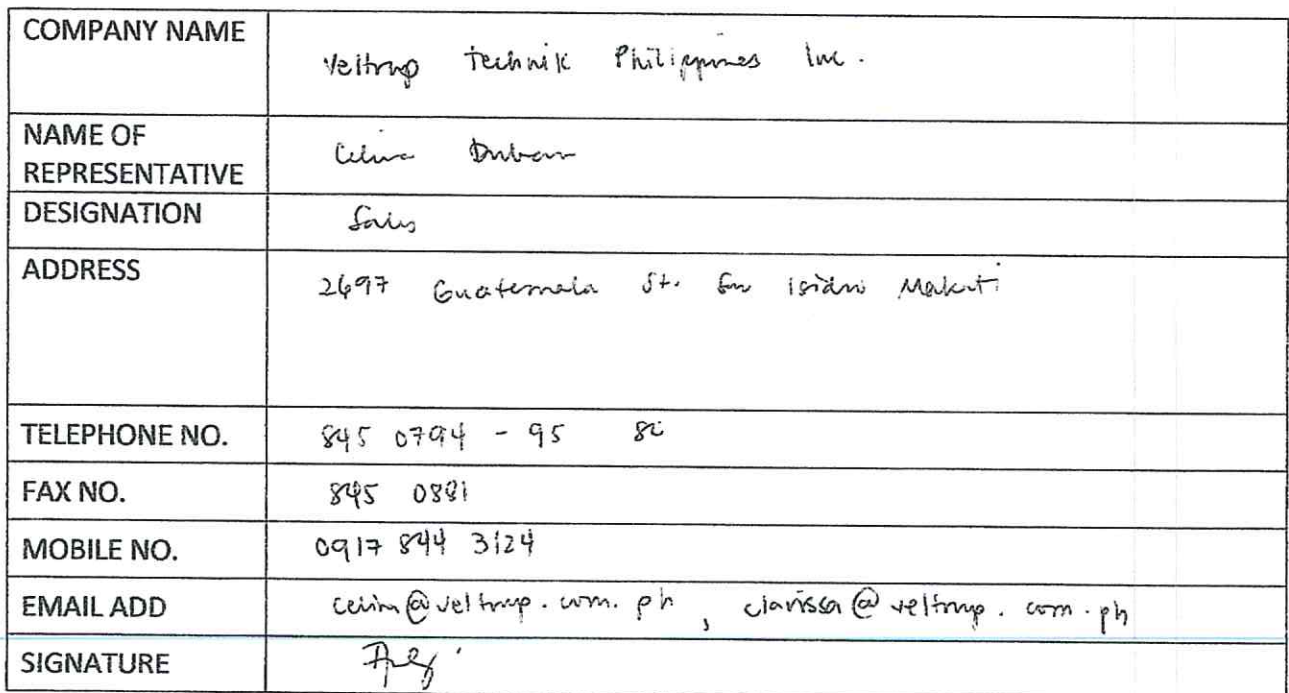 COMPANY NAME
Veltrup Technik Philippines Inc.
NAME OF
REPRESENTATIVE
Celina
DESIGNATION
Sales
ADDRESS
2697 Guatemala St. San Isidro Makati
TELEPHONE NO.
845 0794 - 95
FAX NO.
845 0881
MOBILE NO.
0917 844 3124
EMAIL ADD
celina@veltrup.com.ph , clarissa@veltrup.com.ph
SIGNATURE